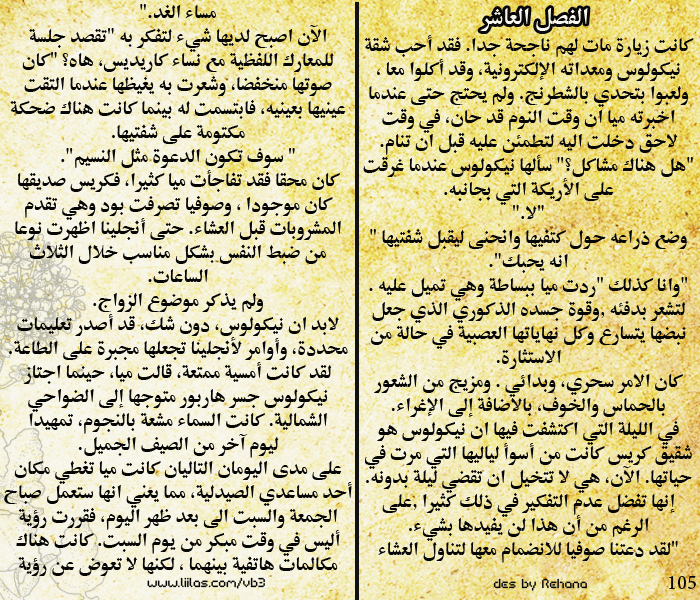 الفصل العاشر
كانت زيارة مات لهم ناجحة جدا. فقد أحب شقة
نيكولوس ومعداته الإلكترونية، وقد أكلوا معا ،
ولعبوا بتحدي بالشطرنج. ولم يحتج حتى عندما
اخبرته ميا ان وقت النوم قد حان، في وقت
لاحق دخلت اليه لتطمئن عليه قبل ان تنام.
"هل هناك مشاكل؟" سألها نيكولوس عندما غرقت
على الأريكة التي بجانبه.
"لا."
وضع ذراعه حول كتفيها وانحنى ليقبل شفتيها "
انه يحبك".
"وانا كذلك "ردت ميا ببساطة وهي تميل عليه .
لتشعر بدفئه ,وقوة جسده الذكوري الذي جعل
نبضها يتسارع وكل نهاياتها العصبية في حالة من
الاستثارة.
كان الامر سحري، وبدائي . ومزيج من الشعور
بالحماس والخوف، بالاضافة إلى الإغراء.
في الليلة التي اكتشفت فيها ان نيكولوس هو
شقيق كريس كانت من أسوأ لياليها التي مرت في
حياتها. الآن، هي لا تتخيل ان تقضي ليلة بدونه.
إنها تفضل عدم التفكير في ذلك كثيرا ,على
الرغم من أن هذا لن يفيدها بشيء.
"لقد دعتنا صوفيا للانضمام معها لتناول العشاء
105
des by Rehana
مساء الغد."
الآن اصبح لديها شيء لتفكر به "تقصد جلسة
للمعارك اللفظية مع نساء كاريديس، هاه؟ "كان
صوتها منخفضا، وشعرت به يغيظها عندما التقت
عينيها بعينيه، فابتسمت له بينما كانت هناك ضحكة
مكتومة على شفتيها.
" سوف تكون الدعوة مثل النسيم".
كان محقا فقد تفاجأت ميا كثيرا، فكريس صديقها
كان موجودا ، وصوفيا تصرفت بود وهي تقدم
المشروبات قبل العشاء. حتى أنجلينا اظهرت نوعا
من ضبط النفس بشكل مناسب خلال الثلاث
الساعات.
ولم يذكر موضوع الزواج.
لابد ان نيكولوس، دون شك، قد أصدر تعليمات
محددة، وأوامر لأنجلينا تجعلها مجبرة على الطاعة.
لقد كانت أمسية ممتعة، قالت ميا، حينما اجتاز
نيكولوس جسر هاربور متوجها إلى الضواحي
الشمالية. كانت السماء مشعة بالنجوم، تمهيدا
ليوم آخر من الصيف الجميل.
على مدى اليومان التاليان كانت ميا تغطي مكان
أحد مساعدي الصيدلية، مما يعني انها ستعمل صباح
الجمعة والسبت الى بعد ظهر اليوم، فقررت رؤية
أليس في وقت مبكر من يوم السبت. كانت هناك
مكالمات هاتفية بينهما ، لكنها لا تعوض عن رؤية
www.liilas.com/vb3